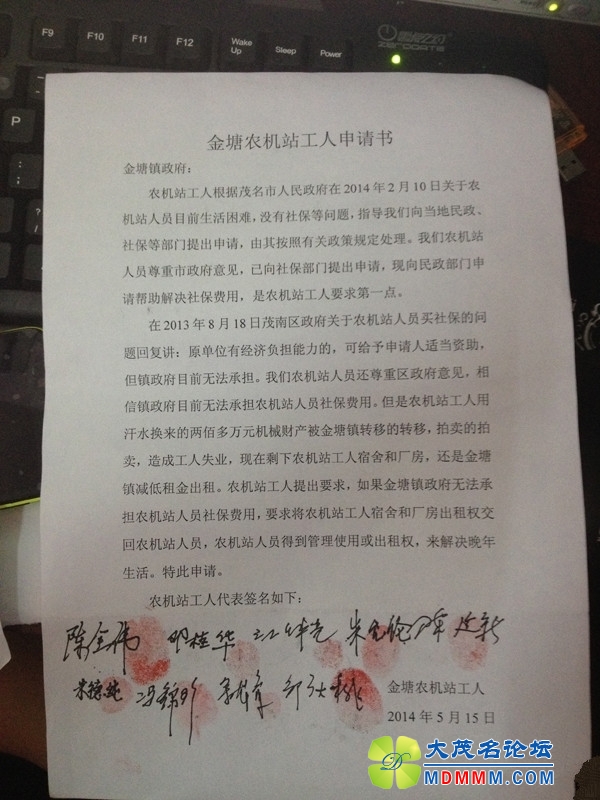 F9 F10 F11 F12 Wake Up Sleep Power
P
金塘农机站工人申请书
金塘镇政府：
农机站工人根据茂名市人民政府在2014年2月10日关于农
机站人员目前生活困难，没有社保等问题，指导我们向当地民政、
社保等部门提出申请，由其按照有关政策规定处理。我们农机站
人员尊重市政府意见，已向社保部门提出申请，现向民政部门申
请帮助解决社保费用，是农机站工人要求第一点。
在2013年8月18日茂南区政府关于农机站人员买社保的问
题回复讲：原单位有经济负担能力的，可给予申请人适当资助，
但镇政府目前无法承担。我们农机站人员还尊重区政府意见，相
信镇政府目前无法承担农机站人员社保费用。但是农机站工人用
汗水换来的两佰多万元机械财产被金塘镇转移的转移，拍卖的拍
卖，造成工人失业，现在剩下农机站工人宿舍和厂房，还是金塘
镇减低租金出租。农机站工人提出要求，如果金塘镇政府无法承
担农机站人员社保费用，要求将农机站工人宿舍和厂房出租权交
回农机站人员，农机站人员得到管理使用或出租权，来解决晚年
生活。特此申请。
农机站工人代表签名如下：
金塘农机站工人
2014年5月15日
大茂名论坛
MDMMM.COM